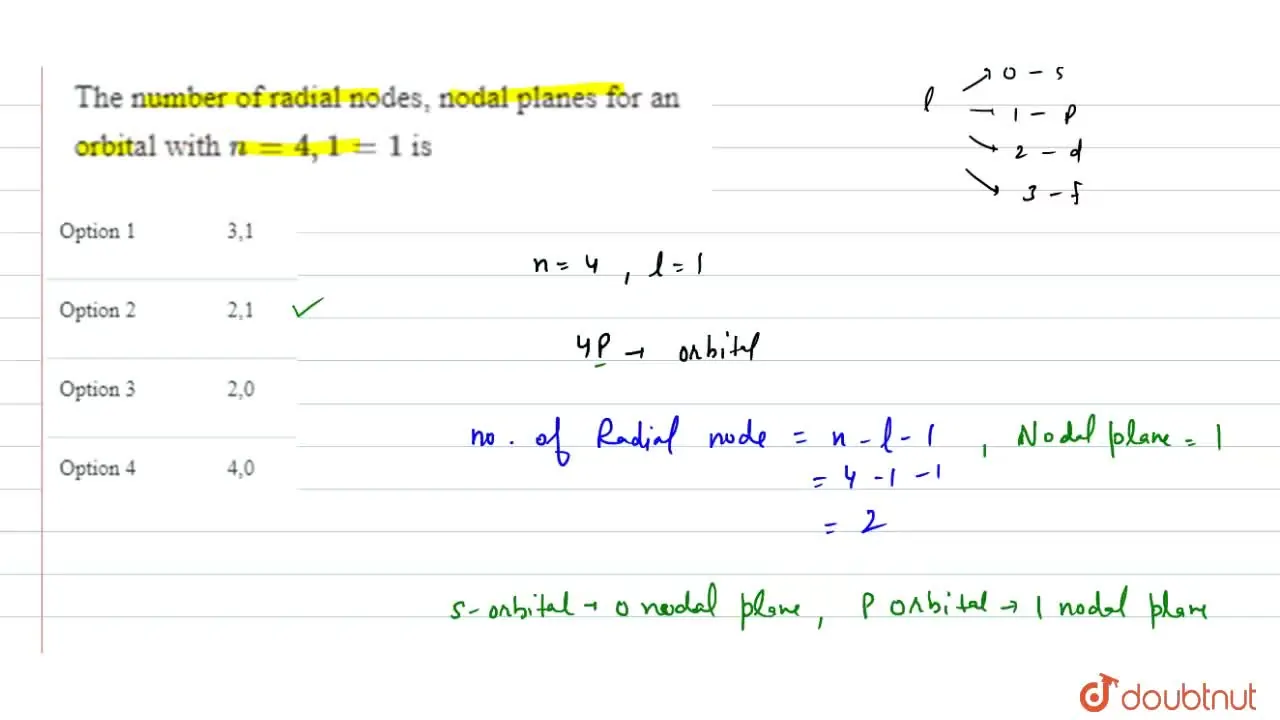 The number of radial nodes, nodal planes for an
orbital with n = 4, 1 = 1 is
l 0 - s
1 - p
2 - d
3 - f
Option 1 3,1
Option 2 2,1 ✓
Option 3 2,0
Option 4 4,0
n = 4 , l = 1
4P → orbital
no. of Radial node = n - l - 1 , Nodal plane = 1
= 4 - 1 - 1
= 2
s-orbital → 0 nodal plane, P orbital → 1 nodal plane
doubtnut